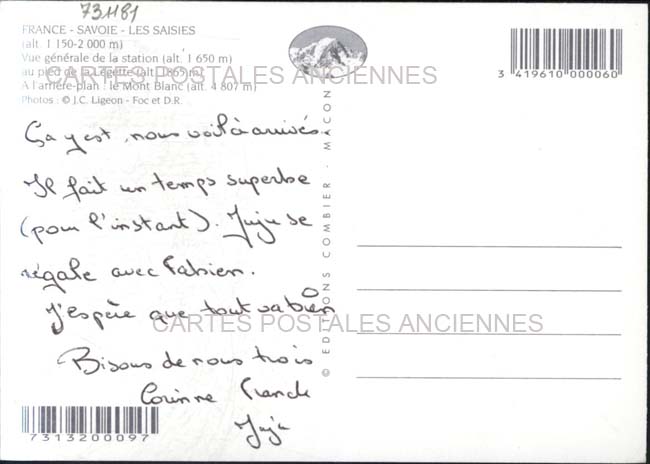 731181
FRANCE - SAVOIE - LES SAISIES
(alt. 1 150-2 000 m)
Vue générale de la station (alt. 1 650 m)
au pied de la Légette (alt. 1865 m)
A l'arrière-plan : le Mont Blanc (alt. 4 807 m)
Photos : © J.C. Ligeon - Foc et D.R.
CARTES POSTALES ANCIENNES
3 419610 000060
© EDITIONS COMBIER - MACON
Ça y est, nous voilà arrivés.
Il fait un temps superbe
(pour l'instant). Juju se
régale avec Fabien.
J'espère que tout va bien
CARTES POSTALES ANCIENNES
Bisous de nous trois
Corinne Franck
Juju
7313200097